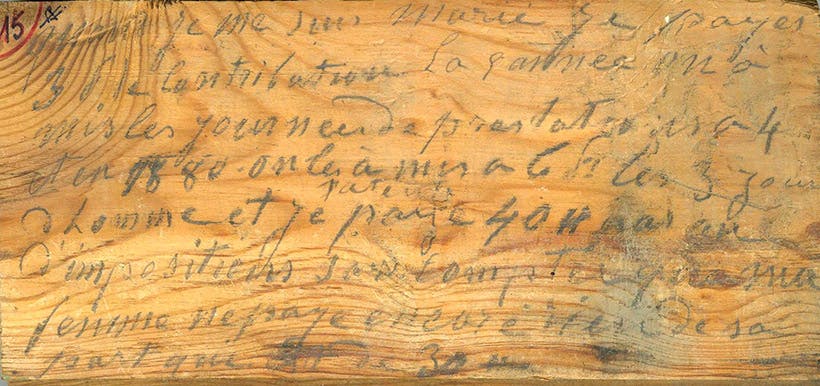 15
quand je me suis marié Je payer
3 f de Contribution La gannee on à
mis les journeerde prestations a 4
et en 1880 on les à mis a 6 f les 3 jour
patente
d'homme et je paye 40 par an
d'impositions san Compter que ma
femme ne paye encore rien de sa
part qui est de 30